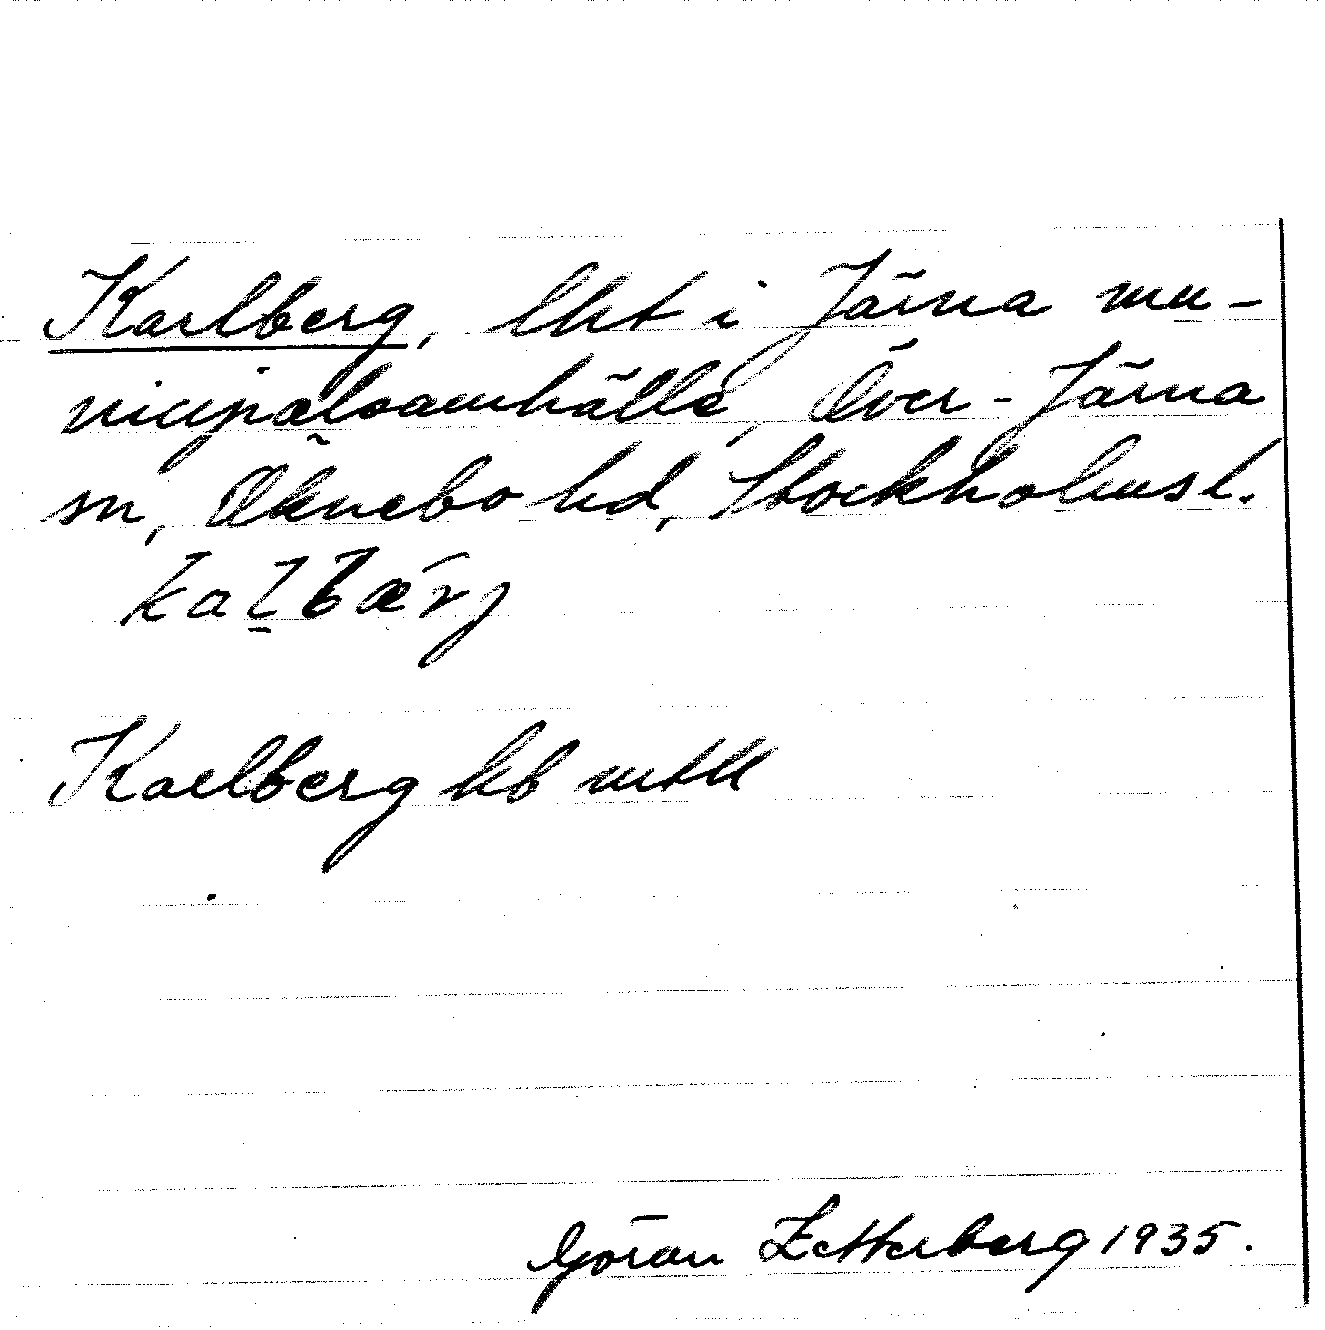 Karlberg, lht i Järna mu-
nicipalsamhälle, Över-Järna
sn, Öknebo hd, Stockholms l.
kaḷbærj
Karlberg hb mtll
Göran Zetterberg 1935.